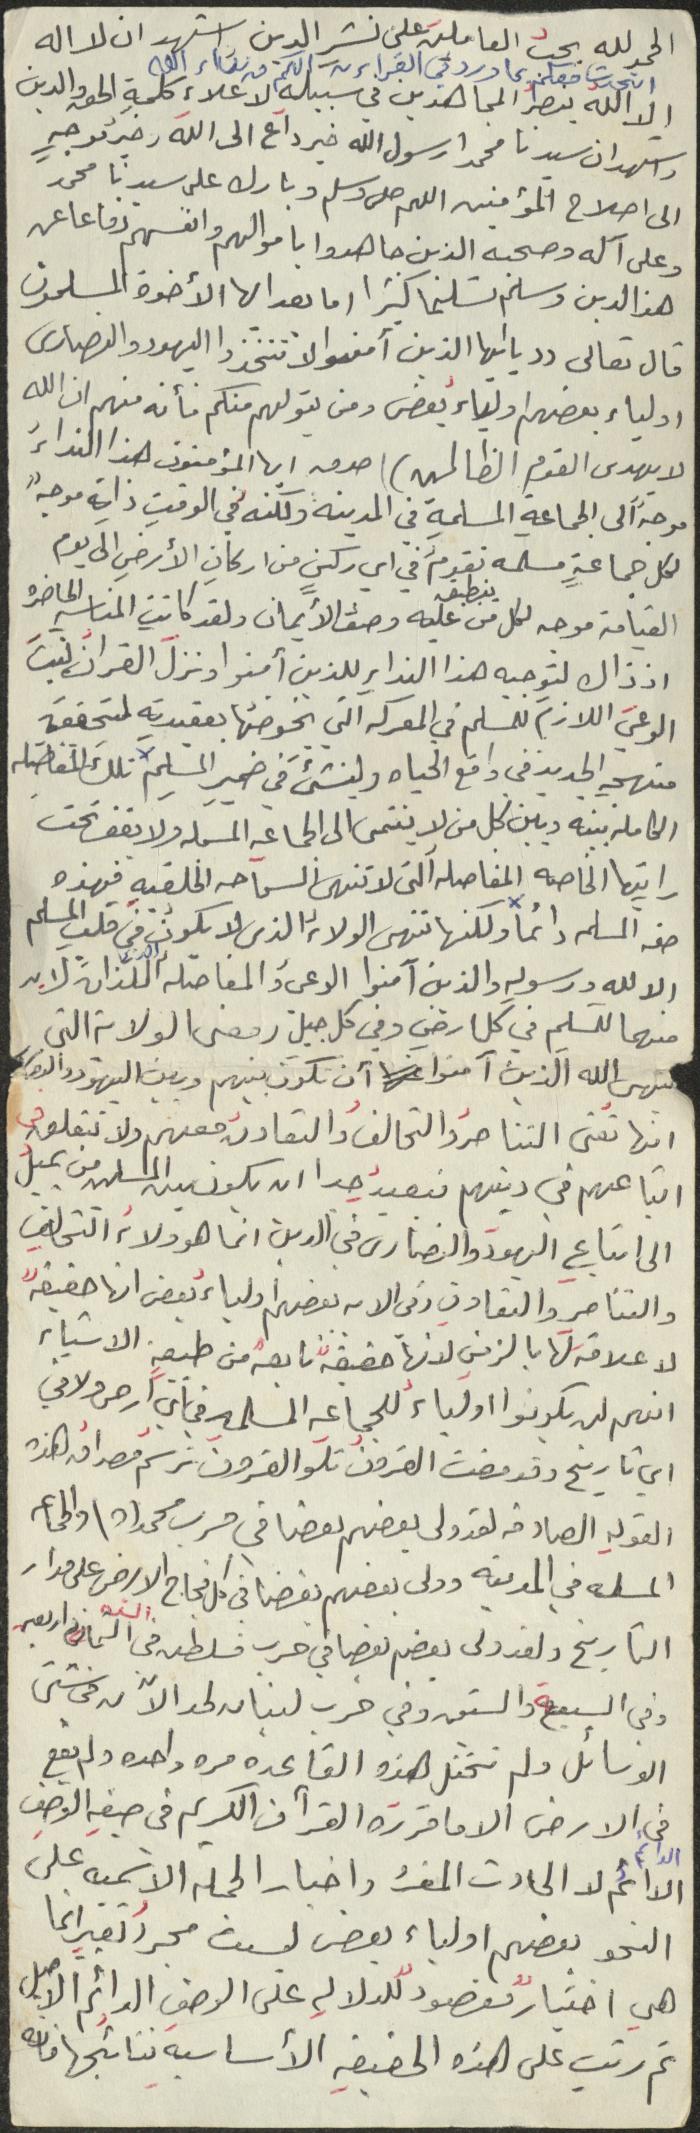 الحمد لله يحب العاملين على نشر الدين اشهد ان لا اله
الا الله ينصر المجاهدين في سبيله لاعلاء كلمة الحق والدين
واشهد ان سيدنا محمدا رسول الله خير داع الى الله وخير موجه
الى اصلاح المؤمنين اللهم صل وسلم وبارك على سيدنا محمد
وعلى آله وصحبه الذين جاهدوا باموالهم وانفسهم دفاعا عن
هذا الدين وسلم تسليما كثيرا اما بعد ايها الأخوة المسلمون
قال تعالى (( يا ايها الذين آمنوا لا تتخذوا اليهود والنصارى
اولياء بعضهم اولياء بعض ومن يتولهم منكم فأنه منهم ان الله
لا يهدى القوم الظالمين )) ايها المؤمنون هذا النداء
موجه الى الجماعة المسلمة في المدينة ولكنه في الوقت ذاته موجه
لكل جماعة مسلمه تقوم في اي ركن من اركان الأرض الى يوم
القيامة موجه لكل من ينطبق عليه وصف الأيمان ولقد كانت المناسبه الحاضره
اذ ذاك لتوجيه هذا النداء للذين آمنوا ونزل القرآن ليبث
الوعي اللازم للمسلم في المعركه التي يخوضها بعقيدته لتحقيق
منهجه الجديد في واقع الحياه ولينشئ في ضمير المسلم تلك المفاصله
الكاملة بينه وبين كل من لا ينتمى الى الجماعه المسلمه ولا يقف تحت
رايتها الخاصه المفاصله التى لا تنهى السماحه الخلقية فهذه
صفه المسلم دائماً ولكنها تنهى الولاء الذى لا يكون في قلب المسلم
الا لله ورسوله والذين آمنوا الوعى والمفاصله اللذان لا بد
منهما للمسلم في كل ارض وفي كل جيل ومعنى الولاية التي
ينهى الله الذين آمنوا ان تكون بينهم وبين اليهود والنصارى
انها تعنى التناصر والتحالف والتعاون معهم ولا تتعلق
اتباعهم في دينهم فبعيد جدا ان يكون بين المسلمين من يميل
الى اتباع اليهود والنصارى في الدين انما هو ولاء التحالف
والتناصر والتعاون وفى الايه بعضهم اولياء بعض انها حقيقة
لا علاقة لها بالزمن لانها حقيقة نابعة من طبيعة الاشياء
انهم لن يكونوا اولياء للجماعه المسلمه في اي ارض ولا في
اي تاريخ وقد مضت القرون تلو القرون ترسم مصداق هذه
القوله الصادقه لقد ولى بعضهم بعضا في حرب محمد والجماعه
المسلمه في المدينة وولى بعضهم بعضا في كل فجاج الارض على مدار
التاريخ ولقد ولى بعضهم بعضا في حرب فلسطين في السنه الثمان واربعين
وفي السبعة والستين وفي حرب لبنان لحد الآن في شتى
الوسائل ولم تختل هذه القاعده مره واحده ولم يقع
في الارض الا ما قرره القرآن الكريم في صيغه الوصف
الدائم لا الحادث المفرد واختيار الجمله الاسميه على
النحو بعضهم اولياء بعض ليست مجرد تعبير انما
هي اختيار مقصود للدلاله على الوصف الدائم الاصيل
ثم رتب على هذه الحقيقه الأساسية نتائجها فانه